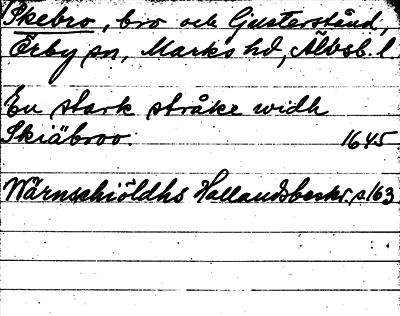 Skebro, bro och Gusterstånd,
Örby sn, Marks hd, Älvsb. l.
En stark stråke widh
Skiäbroo. 1645
Wärnschiöldhs Hallandsbeskr. s. 163